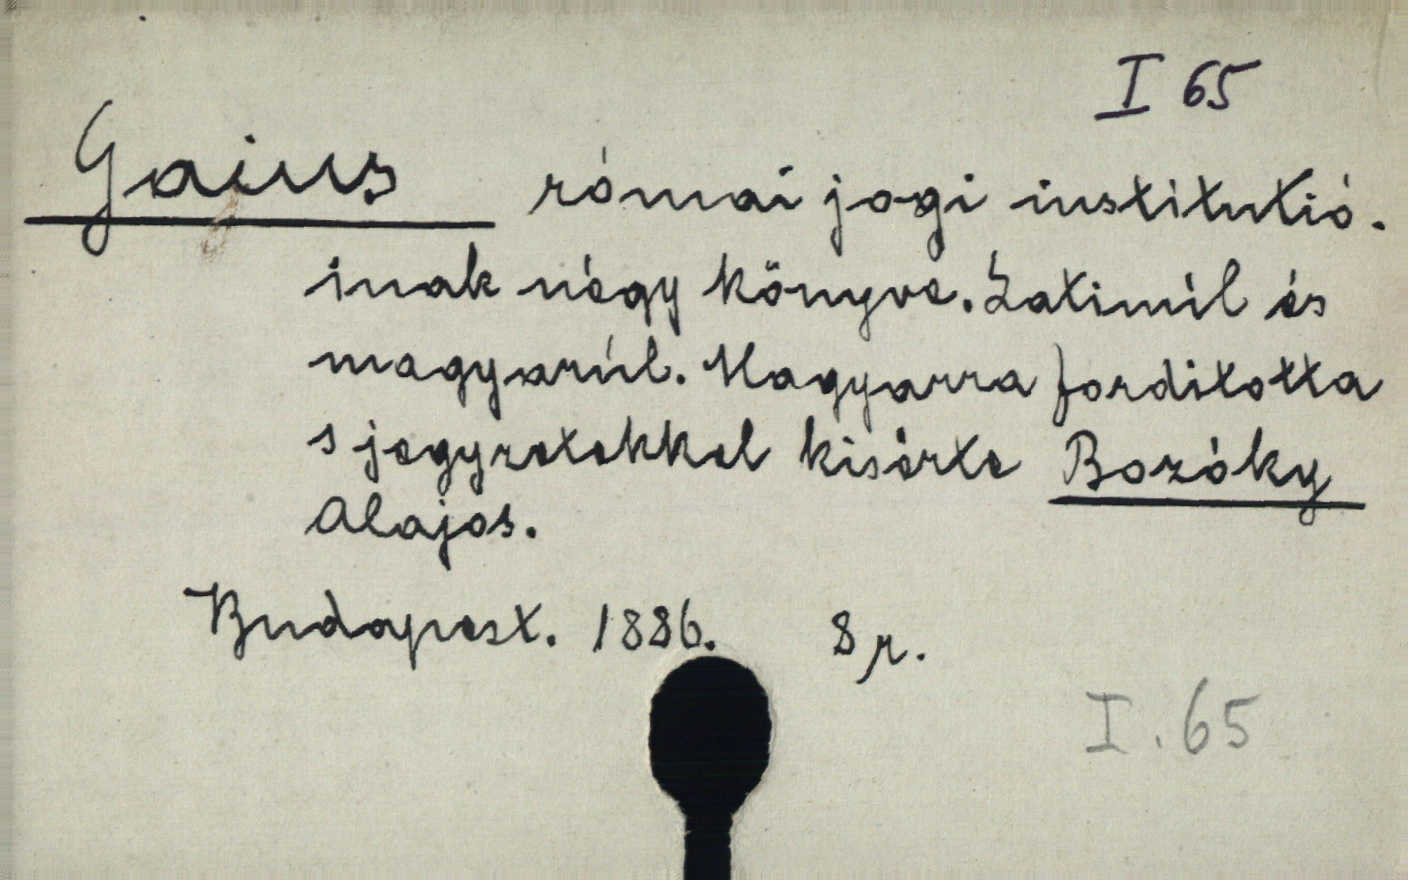 I 65
Gaius római jogi institutió-
inak négy könyve. Latinúl és
magyarúl. Magyarra fordította
s jegyzetekkel kisérte Bozóky
Alajos.
Budapest. 1886. 8 r.
I. 65